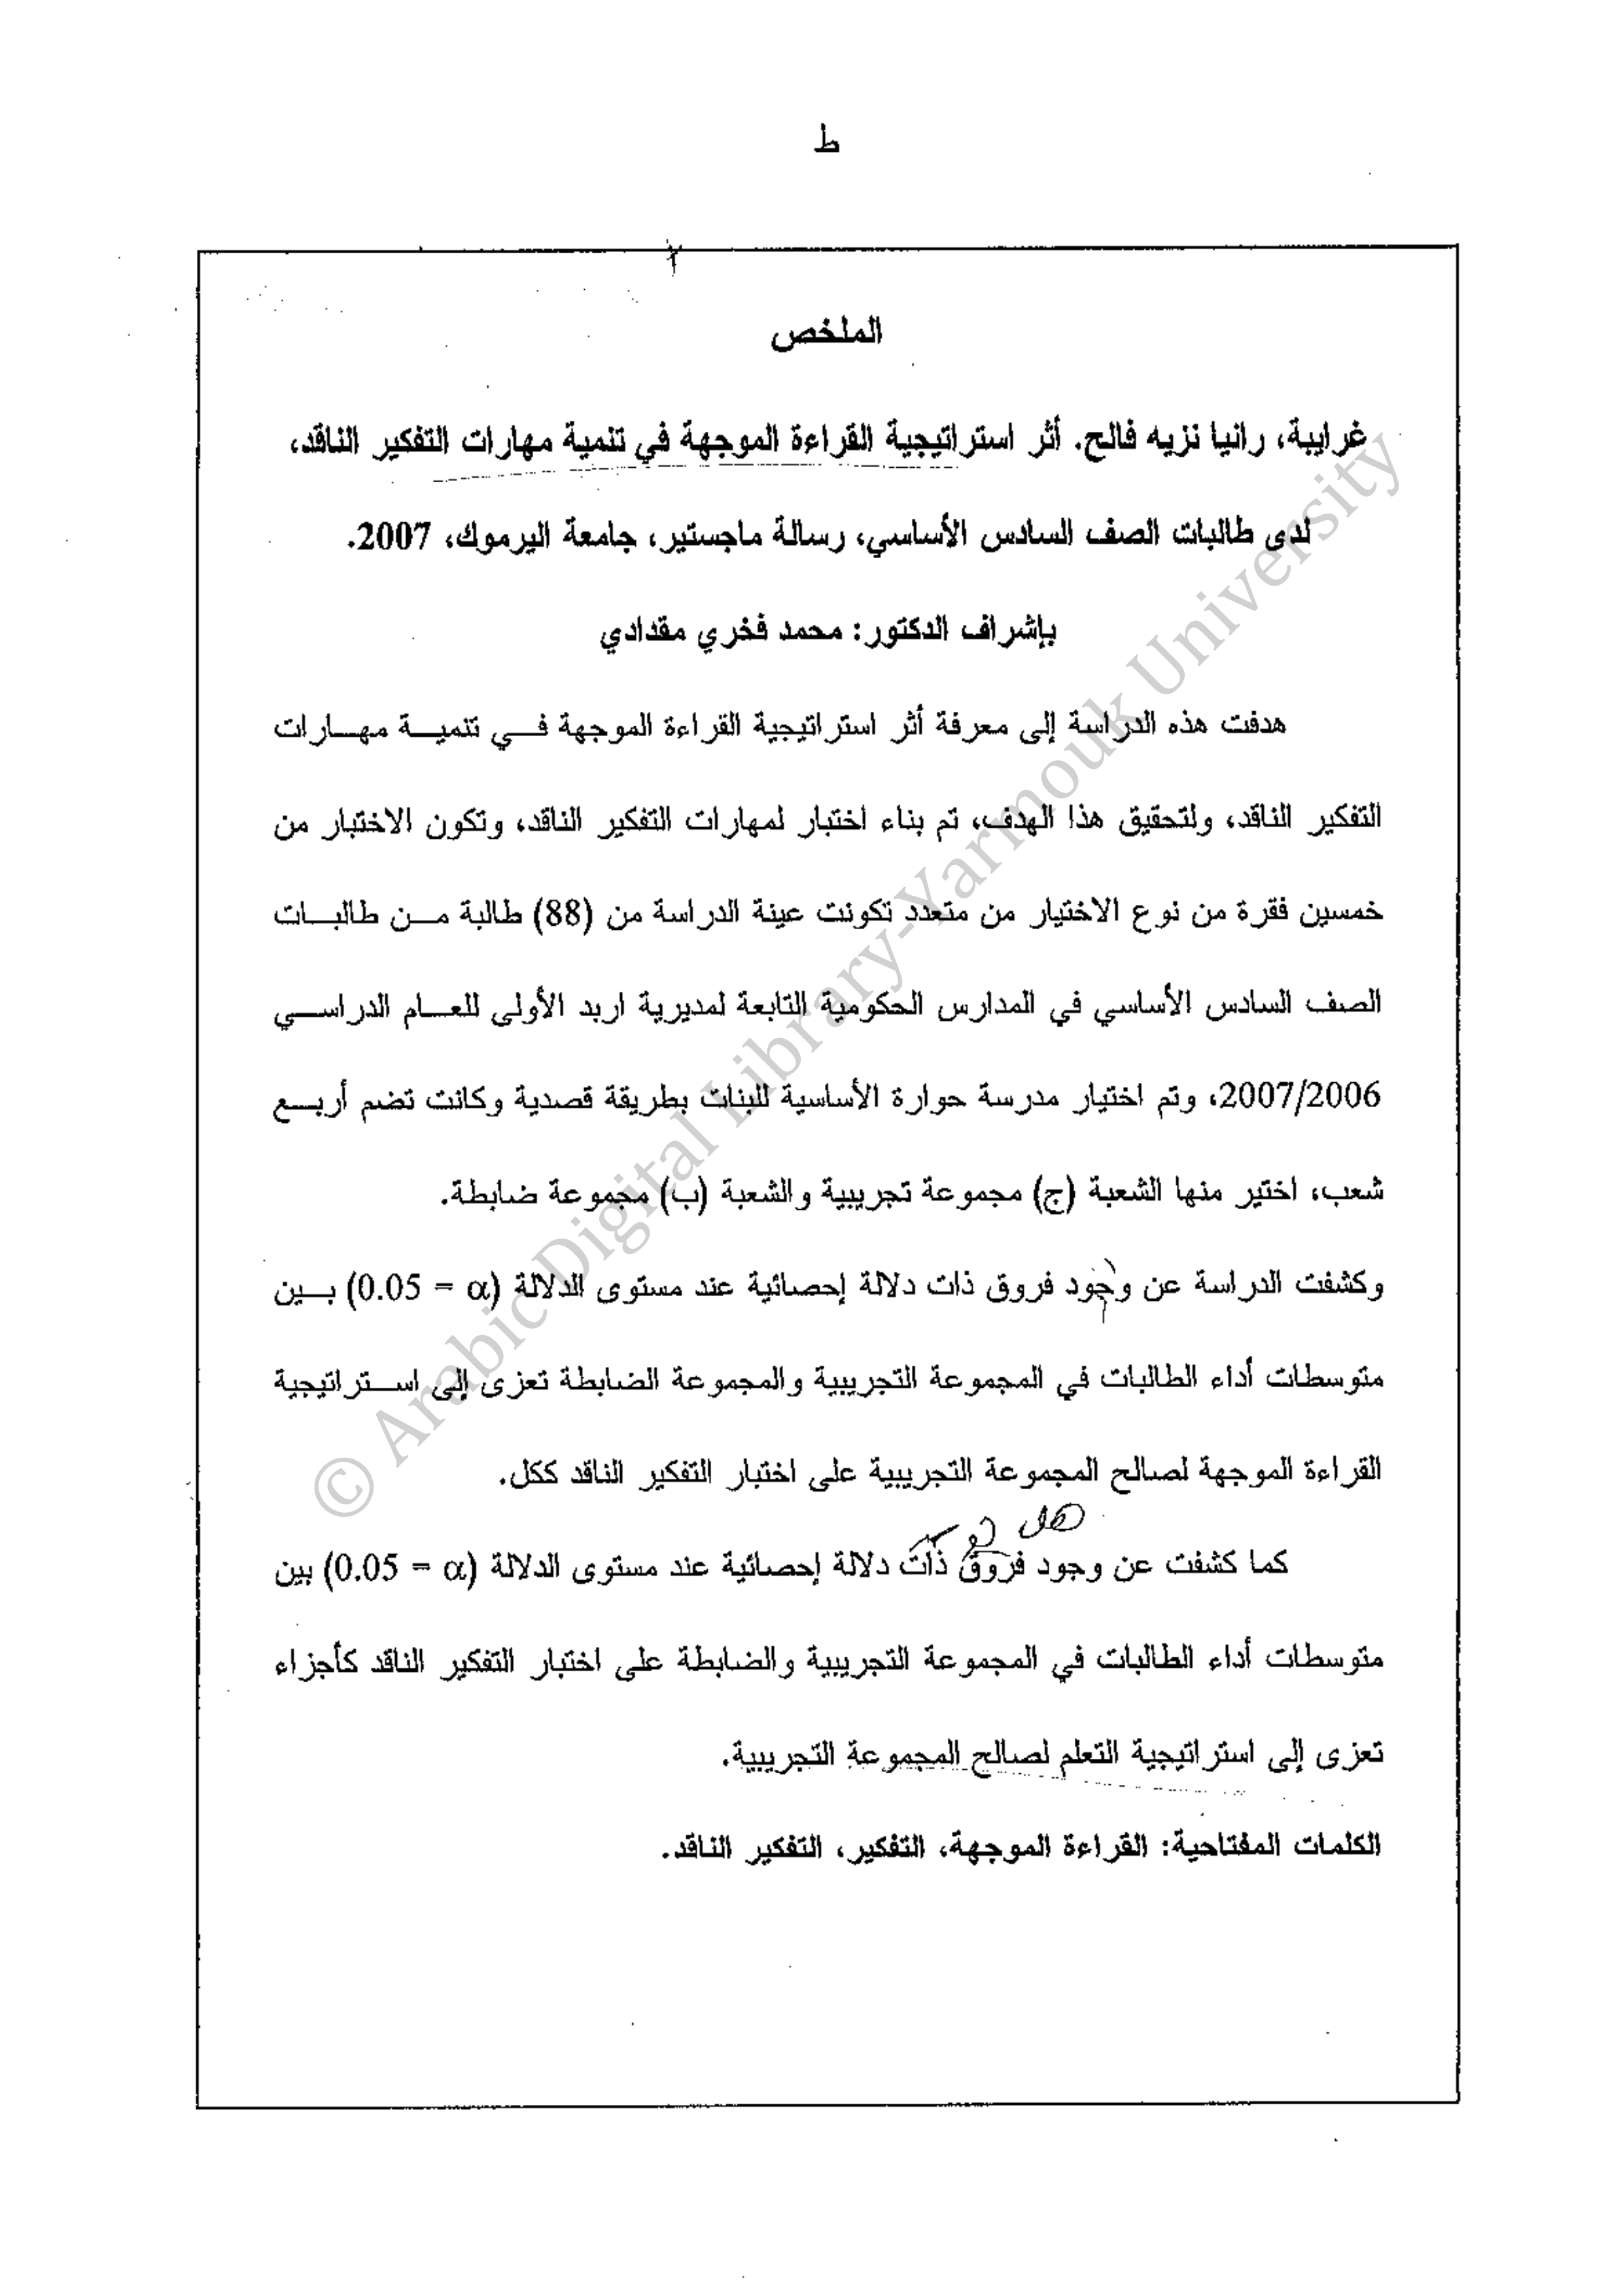 ط
الملخص
غرايبة، رانيا نزيه فالح. أثر استراتيجية القراءة الموجهة في تنمية مهارات التفكير الناقد،
لدى طالبات الصف السادس الأساسي، رسالة ماجستير، جامعة اليرموك، 2007.
بإشراف الدكتور: محمد فخري مقدادي
هدفت هذه الدراسة إلى معرفة أثر استراتيجية القراءة الموجهة في تنمية مهارات
التفكير الناقد، ولتحقيق هذا الهدف، تم بناء اختبار لمهارات التفكير الناقد، وتكون الاختبار من
خمسين فقرة من نوع الاختيار من متعدد تكونت عينة الدراسة من (88) طالبة من طالبات
الصف السادس الأساسي في المدارس الحكومية التابعة لمديرية اربد الأولى للعام الدراسي
2007/2006، وتم اختيار مدرسة حوارة الأساسية للبنات بطريقة قصدية وكانت تضم أربع
شعب، اختير منها الشعبة (ج) مجموعة تجريبية والشعبة (ب) مجموعة ضابطة.
وكشفت الدراسة عن وجود فروق ذات دلالة إحصائية عند مستوى الدلالة (α = 0.05) بين
متوسطات أداء الطالبات في المجموعة التجريبية والمجموعة الضابطة تعزى إلى استراتيجية
القراءة الموجهة لصالح المجموعة التجريبية على اختبار التفكير الناقد ككل.
هل
كما كشفت عن وجود فروق ذات دلالة إحصائية عند مستوى الدلالة (α = 0.05) بين
متوسطات أداء الطالبات في المجموعة التجريبية والضابطة على اختبار التفكير الناقد كأجزاء
تعزى إلى استراتيجية التعلم لصالح المجموعة التجريبية.
الكلمات المفتاحية: القراءة الموجهة، التفكير، التفكير الناقد.
© Arabic Digital Library-Yarmouk University